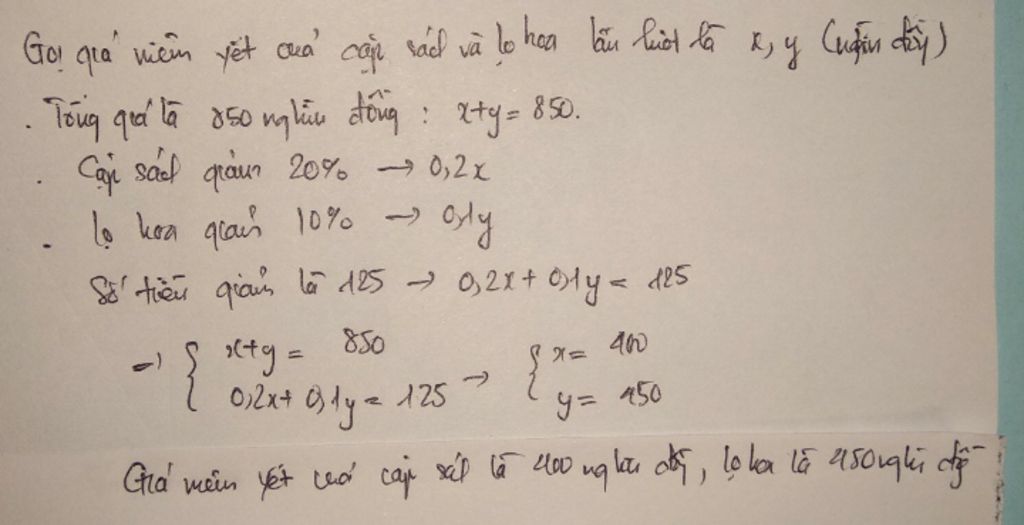 Gọi giá niêm yết của cặp sách và lọ hoa lần lượt là x, y (nghìn đồng)
. Tổng giá là 850 nghìn đồng : x+y= 850.
. Cặp sách giảm 20% → 0,2x
. lọ hoa giảm 10% → 0,1y
Số tiền giảm là 125 → 0,2x + 0,1y = 125
→ { x+y = 850 → { x= 400
0,2x+ 0,1y = 125 y= 450
Giá niêm yết của cặp sách là 400 nghìn đồng, lọ hoa là 450 nghìn đồng